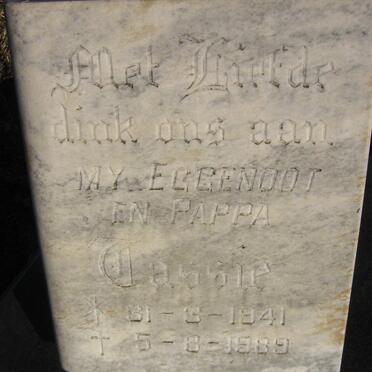 Met Liefde
dink ons aan
MY EGGENOOT
EN PAPPA
Cassie
31-8-1941
5-8-1989